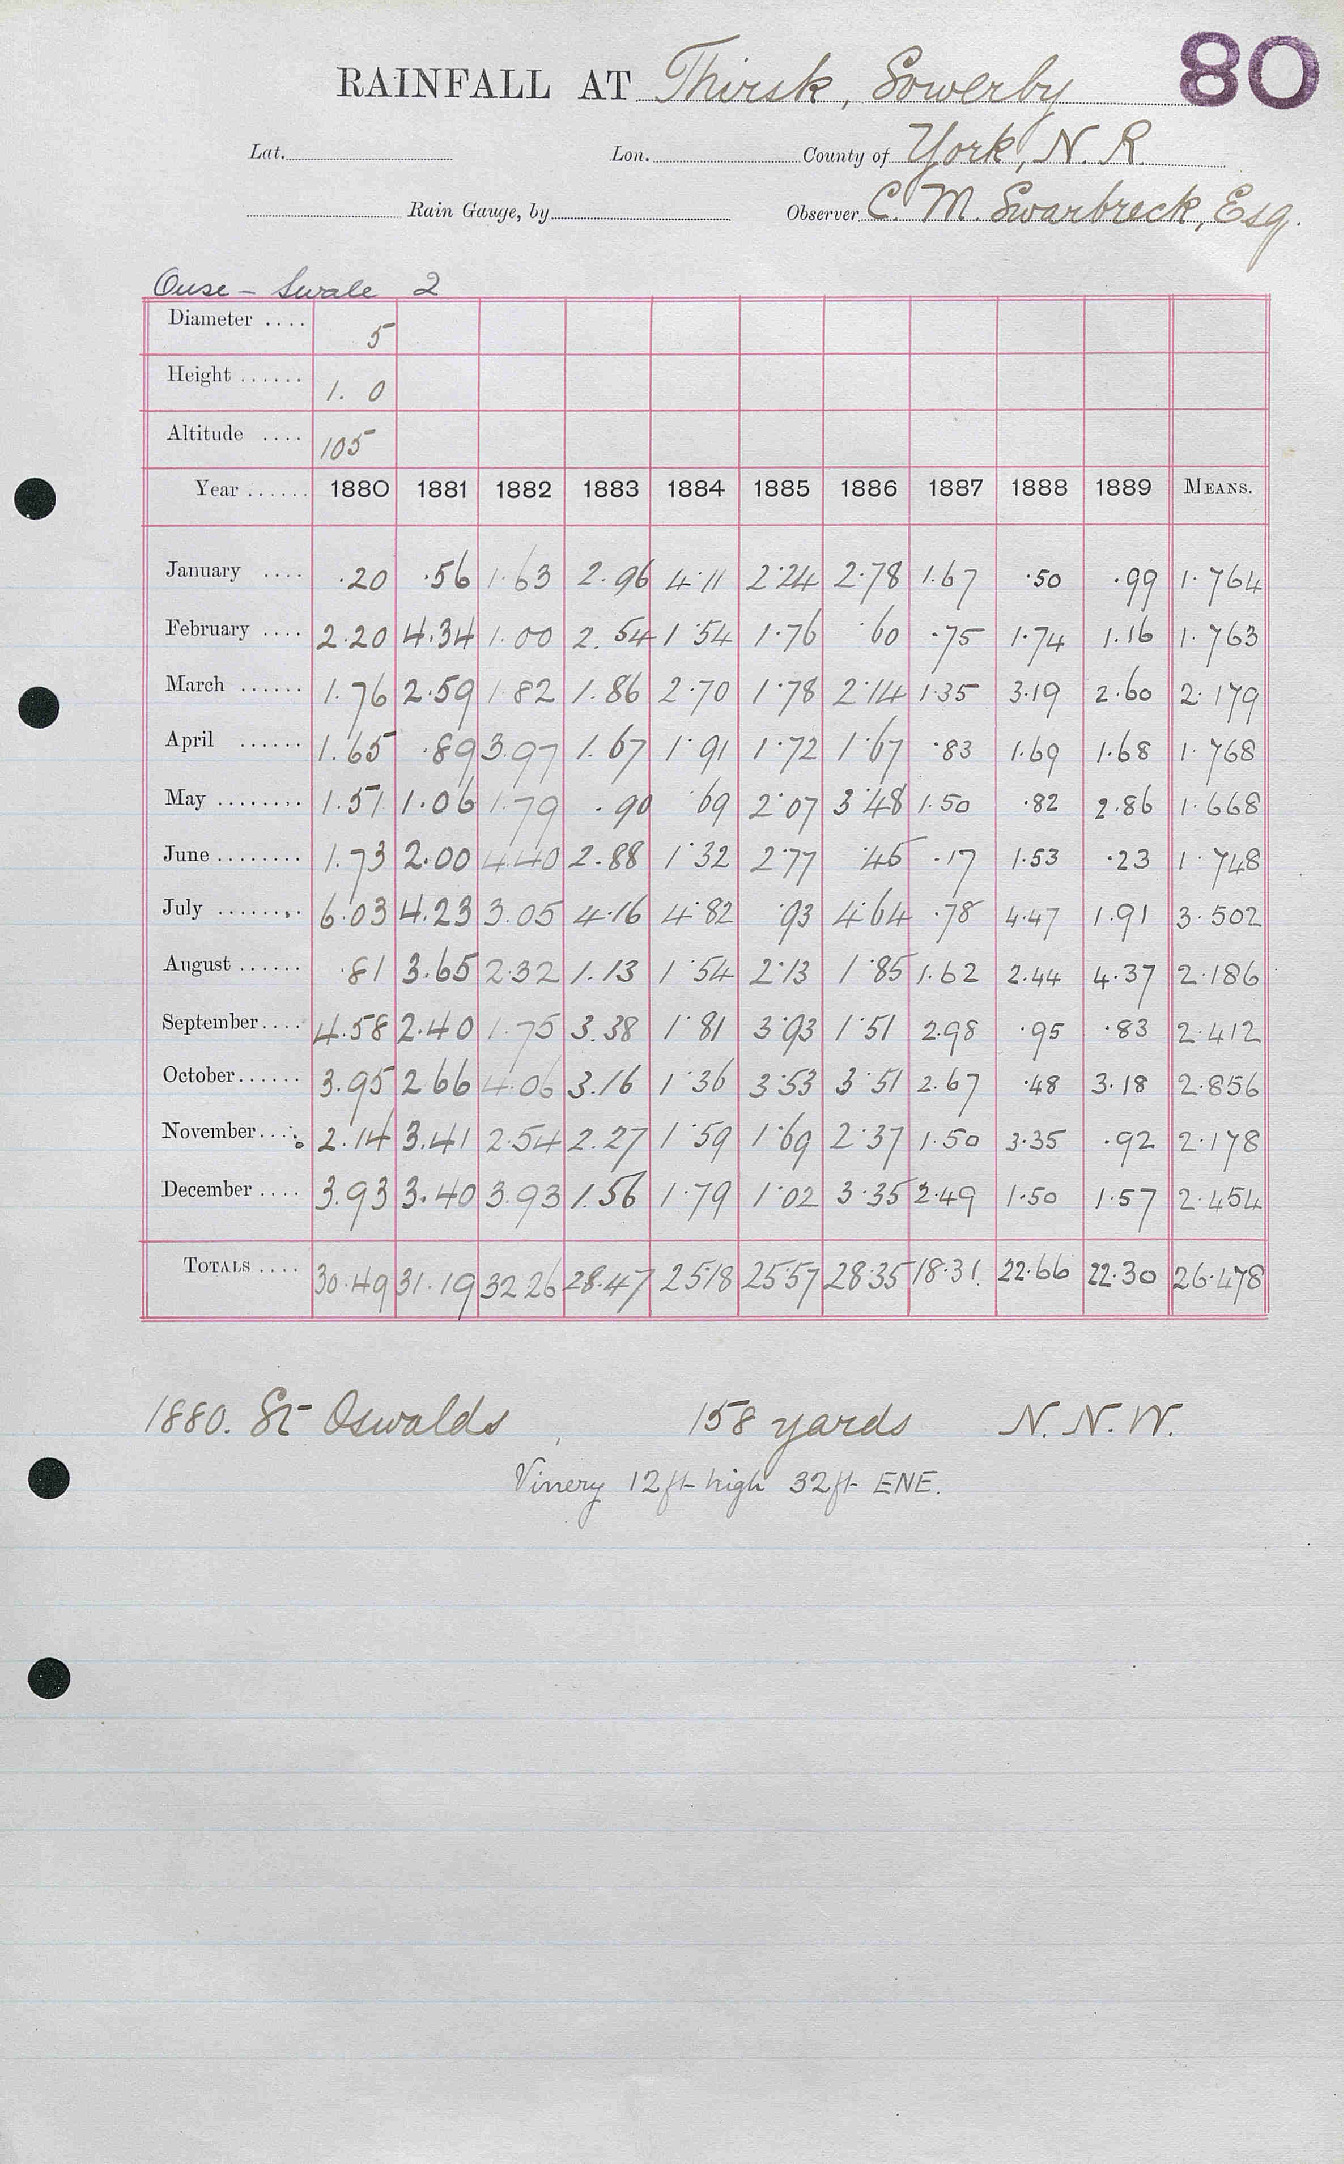 RAINFALL AT Thirsk, Sowerby 80
Lat. Lon. County of York, N. R.
Rain Gauge, by Observer C. M. Swarbreck, Esq.
Ouse - Swale 2
Diameter .... 5
Height ...... 1. 0
Altitude .... 105
Year ...... 1880 1881 1882 1883 1884 1885 1886 1887 1888 1889 MEANS.
January .... .20 .56 1.63 2.96 4.11 2.24 2.78 1.67 .50 .99 1.764
February .... 2.20 4.34 1.00 2.54 1.54 1.76 .60 .75 1.74 1.16 1.763
March ...... 1.76 2.59 1.82 1.86 2.70 1.78 2.14 1.35 3.19 2.60 2.179
April ...... 1.65 .89 3.97 1.67 1.91 1.72 1.67 .83 1.69 1.68 1.768
May ........ 1.51 1.06 1.79 .90 .69 2.07 3.48 1.50 .82 2.86 1.668
June ........ 1.73 2.00 4.40 2.88 1.32 2.77 .46 .17 1.53 .23 1.748
July ........ 6.03 4.23 3.05 4.16 4.82 .93 4.64 .78 4.47 1.91 3.502
August ...... .81 3.65 2.32 1.13 1.54 2.13 1.85 1.62 2.44 4.37 2.186
September.... 4.58 2.40 1.75 3.38 1.81 3.93 1.51 2.98 .95 .83 2.412
October...... 3.95 2.66 4.06 3.16 1.36 3.53 3.51 2.67 .48 3.18 2.856
November.... 2.14 3.41 2.54 2.27 1.59 1.69 2.37 1.50 3.35 .92 2.178
December .... 3.93 3.40 3.93 1.56 1.79 1.02 3.35 2.49 1.50 1.57 2.454
TOTALS .... 30.49 31.19 32 26 28.47 25 18 25 57 28.35 18.31. 22.66 22.30 26.478
1880. St Oswalds, 158 yards N. N. W.
Vinery 12ft high 32ft ENE.